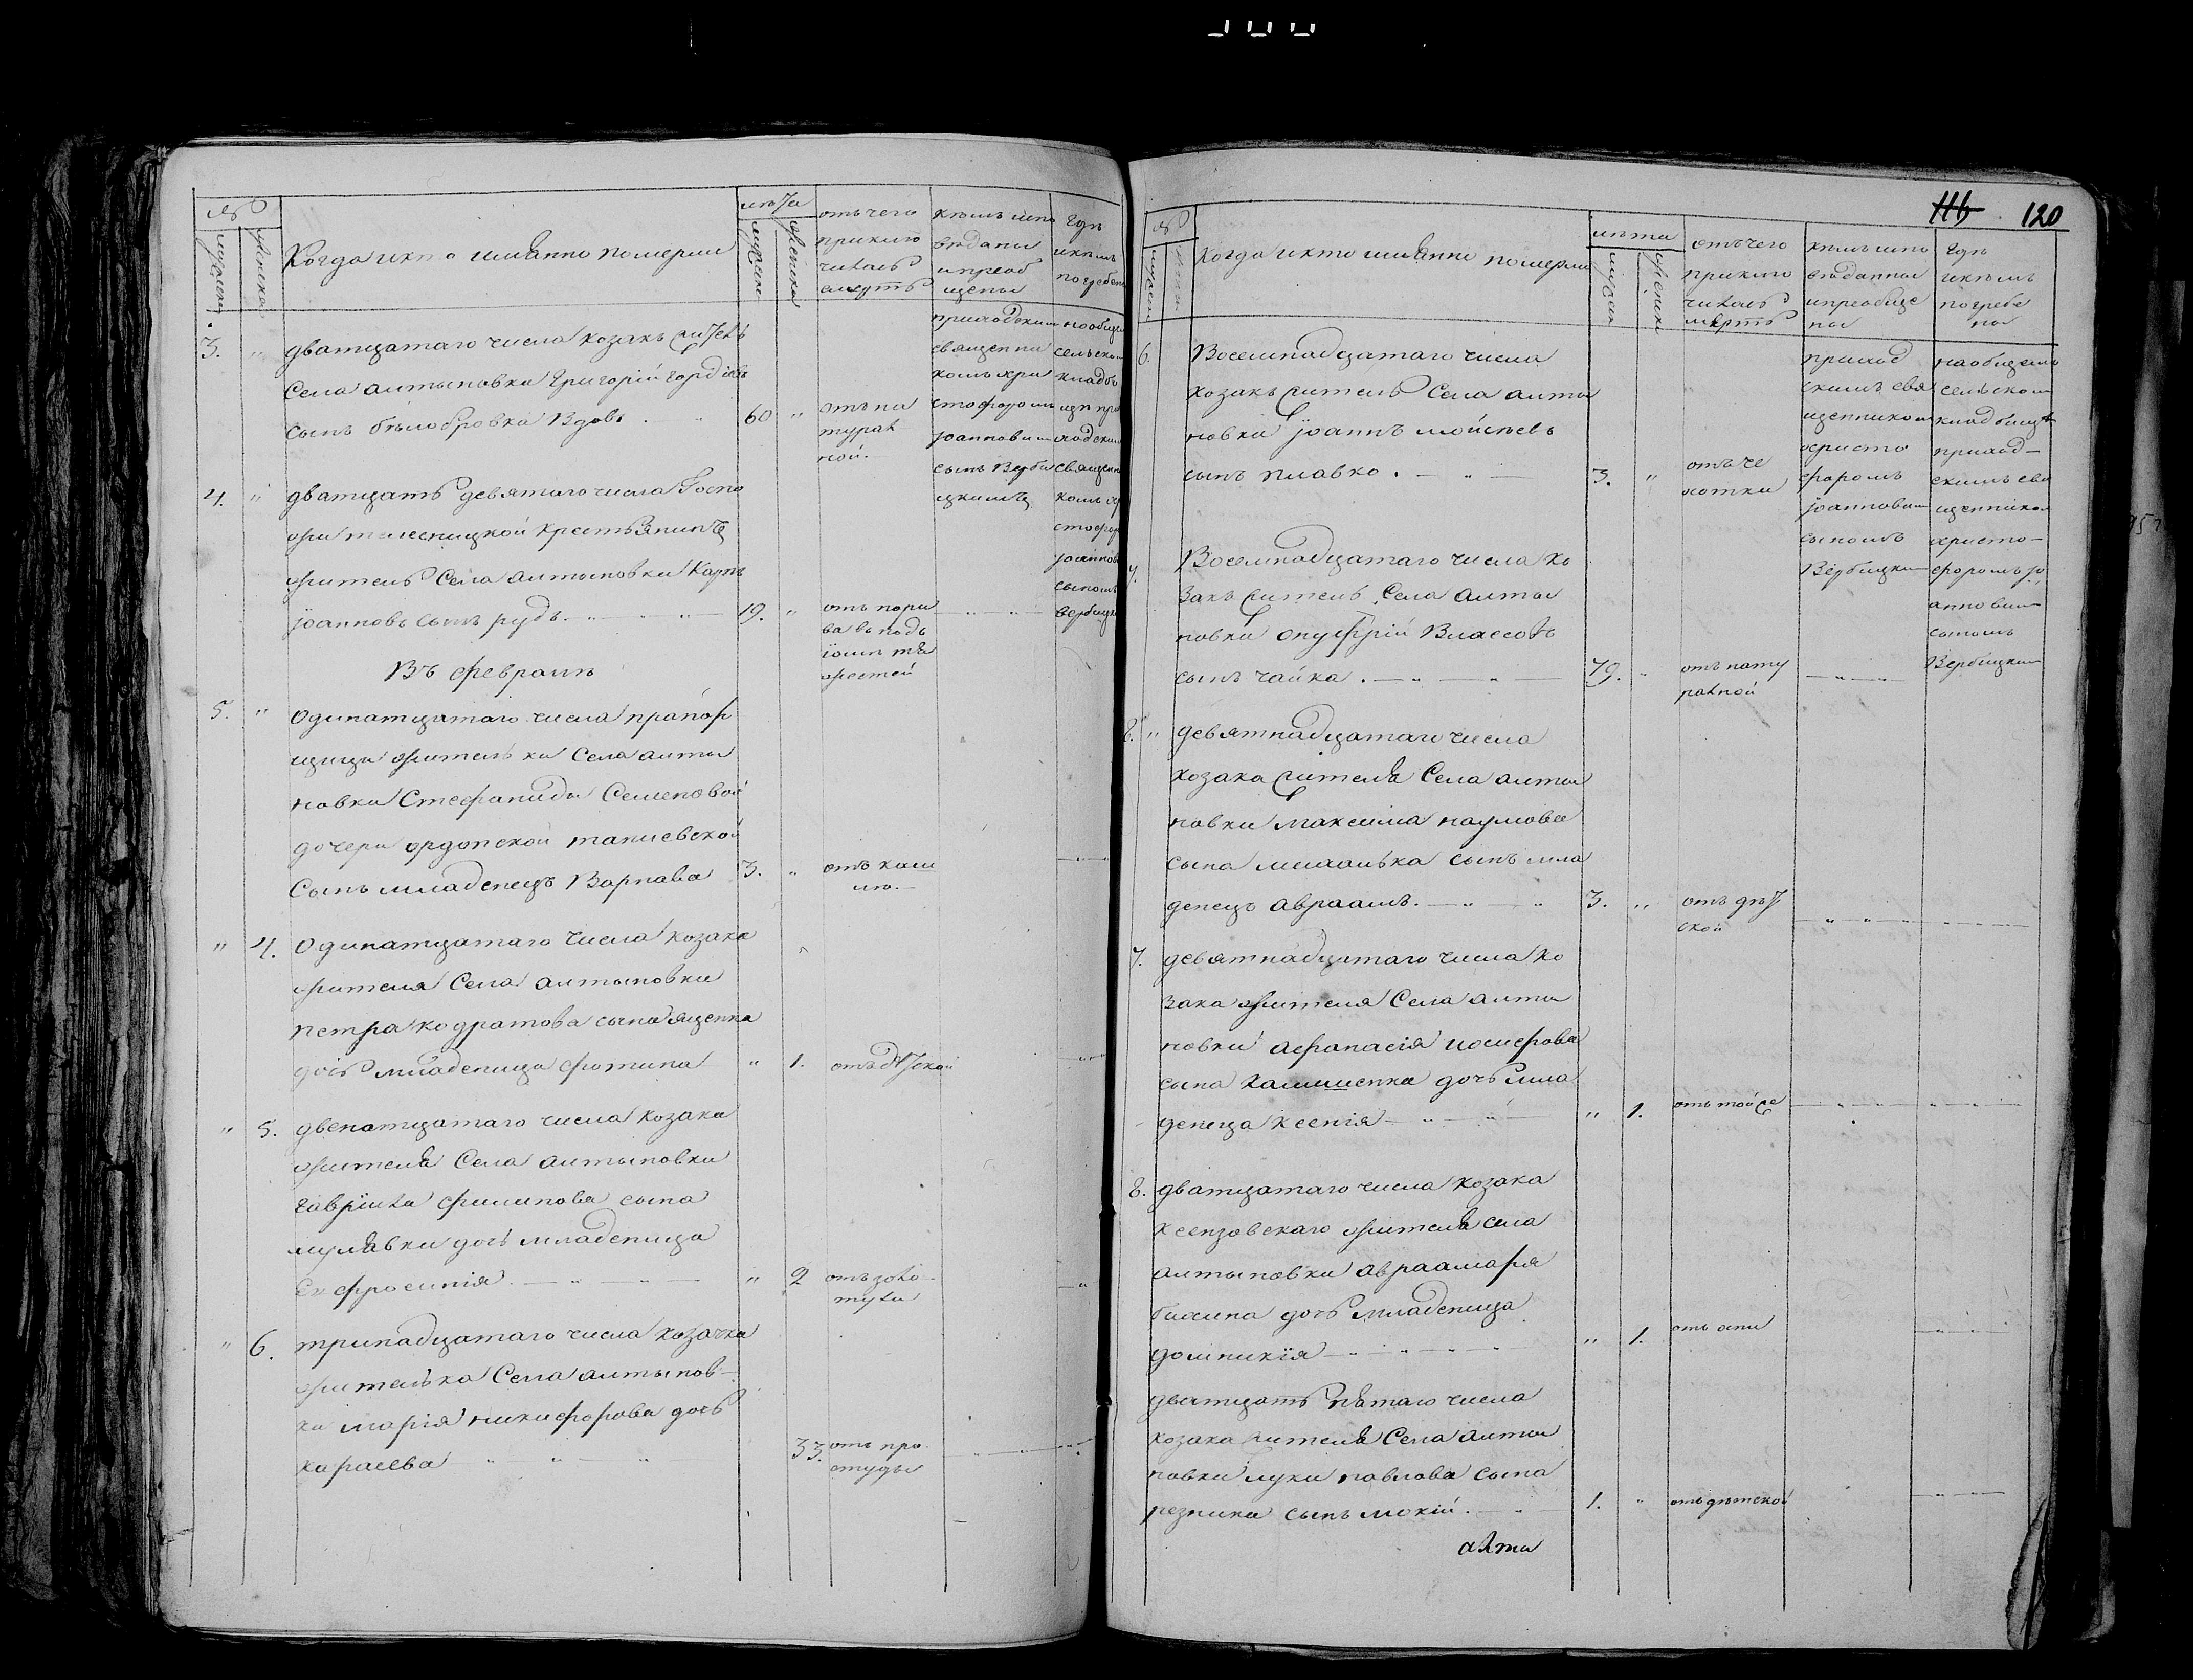 №
мужеска
женска
Когда и кто имянно померли
лѣта
мужеска
женска
отъ чего
приклю
чилась
смерть
кѣмъ испо
вѣданы
и преоб
щены
Гдѣ
и кѣмъ
погребен
3. "
дватцатаго числа козакъ житель
Села алтыновки Григорій Гордіевъ
сынъ бѣлобровка Вдовъ
60 "
отъ на
турал
ной.
приходским
священни
комъ хри
стофором
Іоанновим
сынъ Верби
цкимъ
на общем
сельском
кладби
щи при
ходским
священи
комъ хри
стофор
Іоаннов
сыномъ
вербицк
4. "
дватцать девятаго числа Госпо
жи крестьянинъ
житель Села алтыновки Карпъ
Іоанновъ сынъ рудь
19. "
отъ пори
ва въ подъ
Въ февралѣ
5. "
Одинатцатаго числа прапор
щици жительки Села алты
новки Стефаниды Семеновой
дочери
Сынъ младенецъ Варнава
3. "
отъ каш
лю.
" 4.
Одинатцатаго числа козака
жителя Села алтыновки
петра кодратова сына ященка
дочь младеница фотина
" 1.
отъ дѣтской
" 5.
двенатцатаго числа козака
жителя Села алтыновки
гавріила филипова сына
мулявки дочь младеница
Ев фросинія
" 2
отъ золо
тухи
" 6.
тринадцатаго числа козачка
жителька Села алтынов-
ки марія никифорова дочь
караева
33.
отъ про
студы
116 120
№
мужеска
женска
Когда и кто имянно померли
лѣта
мужеска
женска
отъ чего
приклю
чилась
смерть
кѣмъ испо
вѣданны
и преобще
ны
Гдѣ
и кѣмъ
погребе
ны
6.
Восемнадцатаго числа
козакъ житель Села алты
новки Іоаннъ мойсеевъ
сынъ плавко.
3. "
отъ че
хотки
приход
скимъ свя
щенником
христо
фором
Іоанновим
сыномъ
Вербицким
на общемъ
сельском
кладбищѣ
приход-
скимъ свя
щенником
христо-
форомъ Іо
анновим
сыномъ
Вербицким
7.
Восемнадцатаго числа ко
закъ житель Села алты
новки онуфрій Власовъ
сынъ чайка.
79. "
отъ нату
ралной
8. "
девятнадцатаго числа
козака жителя Села алты
новки максима наумова
сына михалька сынъ мла
денецъ авраамъ.
3. "
отъ дѣт
ской
7.
девятнадцатаго числа ко
зака жителя Села алты
новки афанасія иосифова
сына калишенка дочь мла
денеца ксенія
" 1.
отъ той же
8.
дватцатаго числа козака
ксензовскаго жителя села
алтыновки
бихина дочь младеница
домникія
" 1.
отъ оспи
дватцать пятаго числа
козака жителя Села алты
новки луки павлова сына
резника сынъ мокій.
1. "
отъ дѣтской
алты